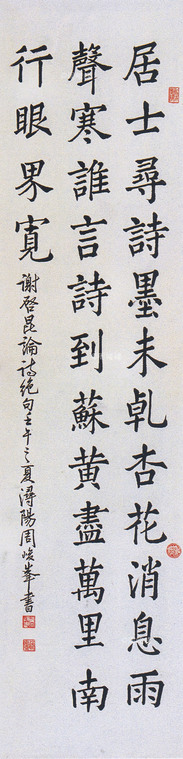 居士尋詩墨未乹杏花消息雨
聲寒誰言詩到蘇黄盡萬里南
行眼界寛
謝啓昆論詩絶句壬午之夏潯陽周峻峯書